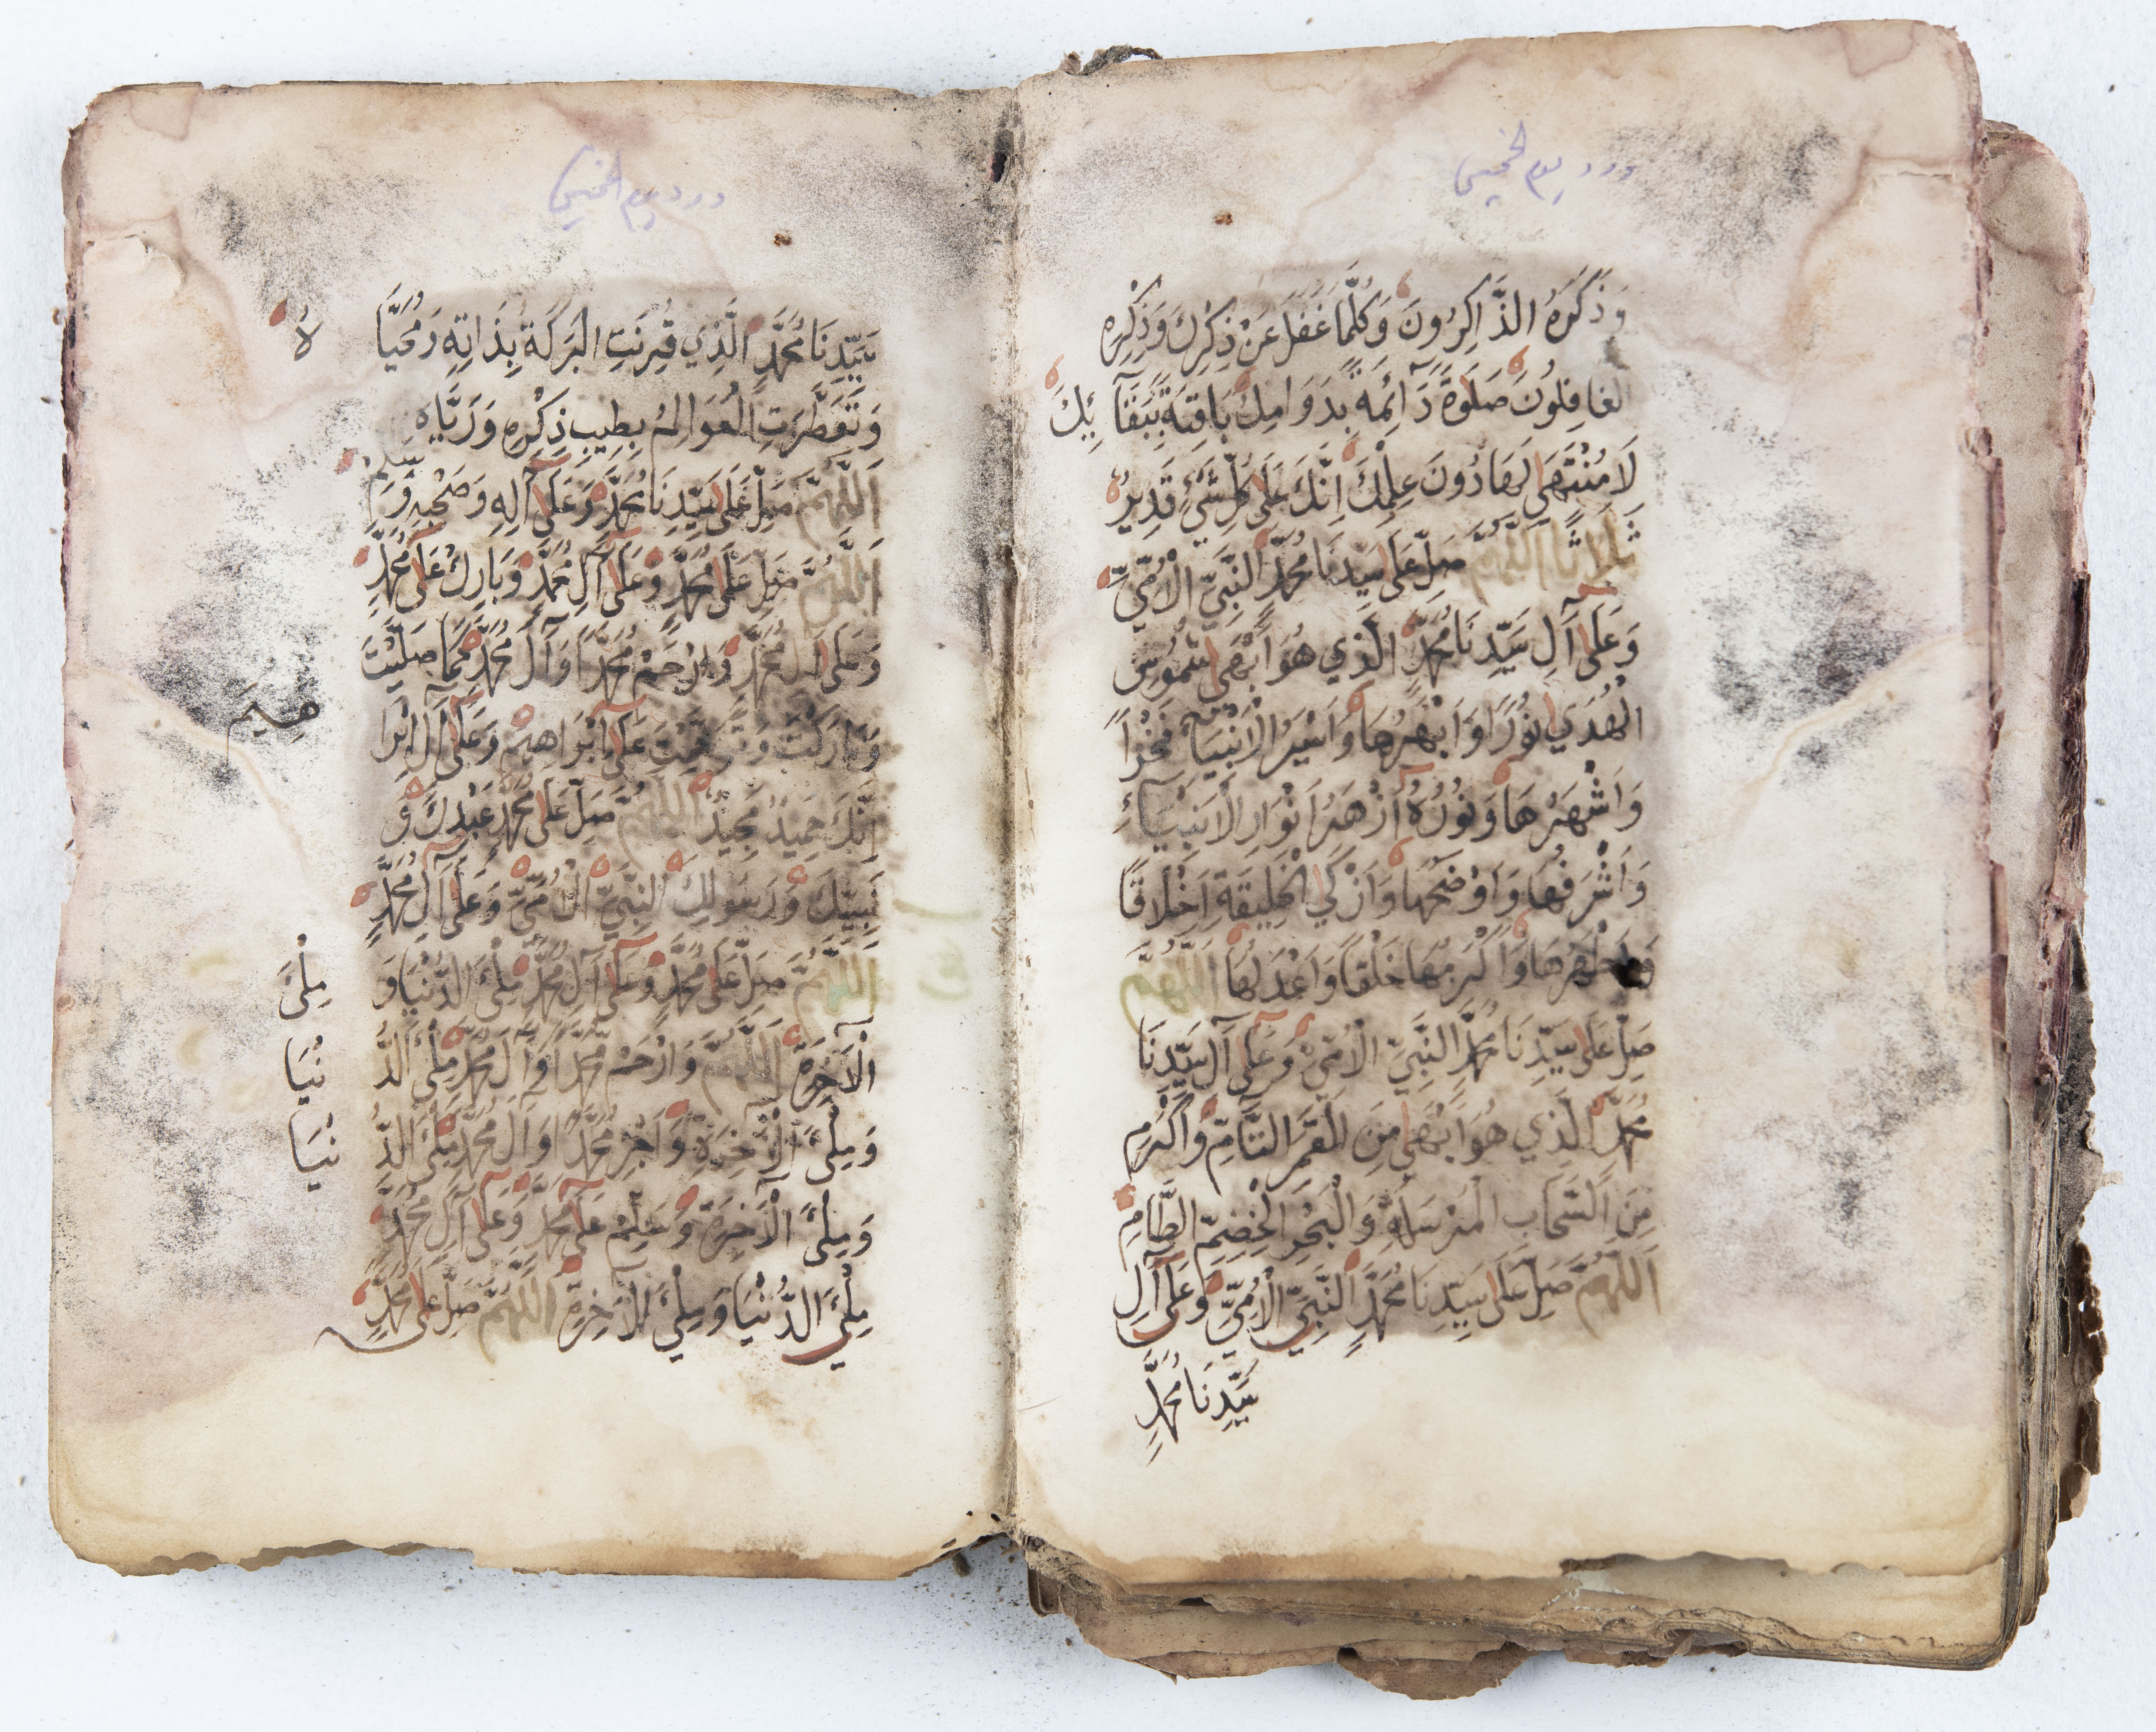 ورد يوم الخميس
وَذَكَرَهُ الذَّاكِرُونَ وَكُلَّمَا غَفَلَ عَنْ ذِكْرِكَ وَذِكْرِهِ
الغَافِلُونَ صَلَوةً دَآئِمَةً بِدَوَامِكَ بَاقِيَةً بِبَقَآئِكَ
لَا مُنْتَهَى لَهَا دُونَ عِلْمِكَ اِنَّكَ عَلَى كُلِّ شَيْءٍ قَدِيرٌ
ثَلَاثًا اَللَّهُمَّ صَلِّ عَلَى سَيِّدِنَا مُحَمَّدٍ النَّبِيِّ الْأُمِّيِّ
وَعَلَى آلِ سَيِّدِنَا مُحَمَّدٍ الَّذِي هُوَ اَبْهَى شُمُوسِ
الْهُدَي نُورًا وَاَبْهَرُهَا وَاَسْيَرُ الْاَنْبِيَآءِ فَخْرًا
وَاَشْهَرُهَا وَنُورُهُ اَزْهَرُ اَنْوَارِ الْاَنْبِيَآءِ
وَاَشْرَفُهَا وَاَوْضَحُهَا وَاَزْكَي الْخَلِيقَةِ اَخْلَاقًا
وَاَطْهَرُهَا وَاَكْرَمُهَا خَلْقًا وَاَعْدَلُهَا اَللَّهُمَّ
صَلِّ عَلَى سَيِّدِنَا مُحَمَّدٍ النَّبِيِّ الْأُمِّيِّ وَعَلَى آلِ سَيِّدِنَا
مُحَمَّدٍ الَّذِي هُوَ اَبْهَى مِنَ الْقَمَرِ التَّآمِّ وَاَكْرَمِ
مِنَ السَّحَابِ الْمُرْسَلَةِ وَالْبَحْرِ الْخِضَمِّ الطَّامِ
اَللَّهُمَّ صَلِّ عَلَى سَيِّدِنَا مُحَمَّدٍ النَّبِيِّ الْأُمِّيِّ وَعَلَى آلِ
سَيِّدِنَا مُحَمَّدٍ
ورد يوم الخميس
سَيِّدِنَا مُحَمَّدٍ الَّذِي قُرِنَتِ الْبَرَكَةُ بِذَاتِهِ وَمُحَيَّاهُ
وَتَعَطَّرَتِ الْعَوَالِمُ بِطِيبِ ذِكْرِهِ وَرَيَّاهِ
اَللَّهُمَّ صَلِّ عَلَى سَيِّدِنَا مُحَمَّدٍ وَعَلَى آلِهِ وَصَحْبِهِ وَسَلِّمْ
اَللَّهُمَّ صَلِّ عَلَى مُحَمَّدٍ وَعَلَى آلِ مُحَمَّدٍ وَبَارِكْ عَلَى مُحَمَّدٍ
وَعَلَى آلِ مُحَمَّدٍ وَارْحَمْ مُحَمَّدًا وَآلَ مُحَمَّدٍ كَمَا صَلَّيْتَ
وَبَارَكْتَ وَتَرَحَّمْتَ عَلَى اِبْرَاهِيمَ وَعَلَى آلِ اِبْرَاهِيمَ
اِنَّكَ حَمِيدٌ مَجِيدٌ اَللَّهُمَّ صَلِّ عَلَى مُحَمَّدٍ عَبْدِكَ وَ
نَبِيِّكَ وَرَسُولِكَ النَّبِيِّ الْأُمِّيِّ وَعَلَى آلِ مُحَمَّدٍ
اَللَّهُمَّ صَلِّ عَلَى مُحَمَّدٍ وَعَلَى آلِ مُحَمَّدٍ مِلْئَ الدُّنْيَا وَ مِلْئَ
الْآخِرَةِ اَللَّهُمَّ وَارْحَمْ مُحَمَّدًا وَآلَ مُحَمَّدٍ مِلْئَ الدُّنْيَا
وَمِلْئَ الْآخِرَةِ وَاَجْزِ مُحَمَّدًا وَآلَ مُحَمَّدٍ مِلْئَ الدُّنْيَا
وَمِلْئَ الْآخِرَةِ وَسَلِّمْ عَلَى مُحَمَّدٍ وَعَلَى آلِ مُحَمَّدٍ
مِلْئَ الدُّنْيَا وَمِلْئَ الْآخِرَةِ اَللَّهُمَّ صَلِّ عَلَى مُحَمَّدٍ